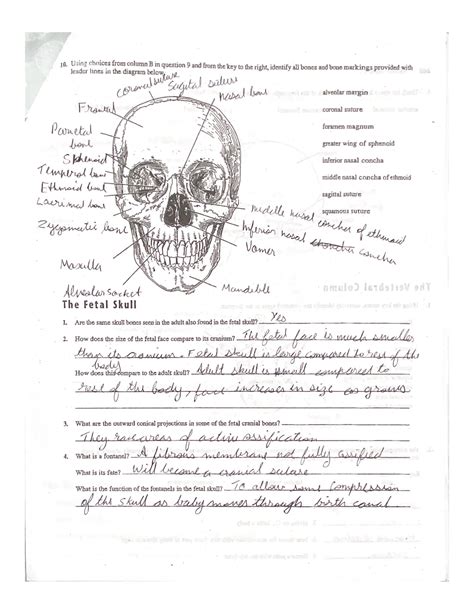 10. Using choices from column B in question 9 and from the key to the right, identify all bones and bone markings provided with
leader lines in the diagram below.
coronal suture
Sagital suture
nasal bone
Frontal
Parietal
bone
Sphenoid
Temperal bone
Ethmoid bone
Lacrimal bone
Zygomatic bone
Maxilla
Alveolar socket
alveolar margin
coronal suture
foramen magnum
greater wing of sphenoid
inferior nasal concha
middle nasal concha of ethmoid
sagittal suture
squamous suture
middle nasal
concher of ethmoid
Inferior nasal concher
Vomer
Mandible
The Fetal Skull
1. Are the same skull bones seen in the adult also found in the fetal skull? Yes
2. How does the size of the fetal face compare to its cranium? The fetal face is much smaller
than its cranium. Fetal skull is large compared to rest of the
body
How does this compare to the adult skull? Adult skull is small compared to
rest of the body, face increases in size as grows
3. What are the outward conical projections in some of the fetal cranial bones?
They are areas of active ossification
4. What is a fontanel? A fibrous membrane not fully ossified
What is its fate? Will become a cranial suture
What is the function of the fontanels in the fetal skull? To allow some compression
of the skull as baby moves through birth canal